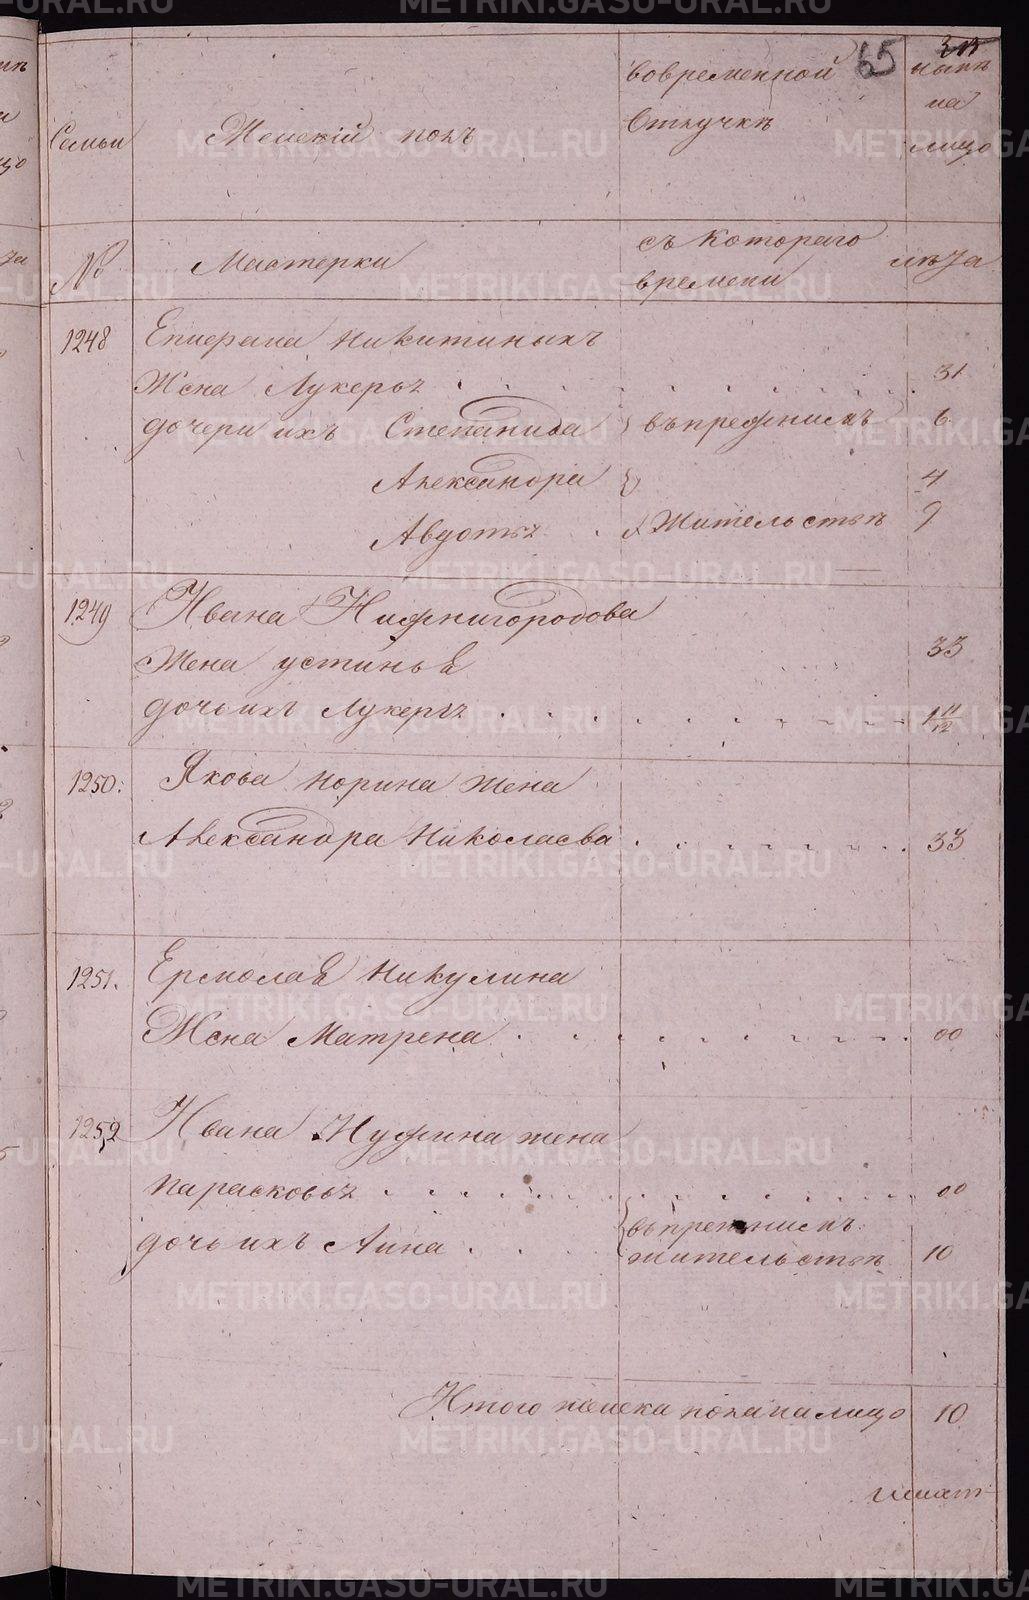 METRIKI.GASO-URAL.RU
65
Семьи
Женскій полъ
вовременной
Отлучкѣ
нынѣ
на
лицо
№
Мастерки
съ Котораго
времени
лѣта
1248
Епифана Никитиныхъ
Жена Лукерья
31
дочери ихъ Степанида
въпрежнисмъ
6
Александра
4
Авдотья
Жительствѣ
9
1249
Ивана Нижнигородова
Жена устинья
33
дочь ихъ Лукерья
1 11/12
1250.
Якова норина жена
Александра Николаева
33
1251.
Ермолая Никулина
Жена Матрена
00
1252
Ивана Нужина жена
парасковья
00
дочь ихъ Анна
въпрежнисмъ
жительствѣ
10
Итого женска пола налицо
10